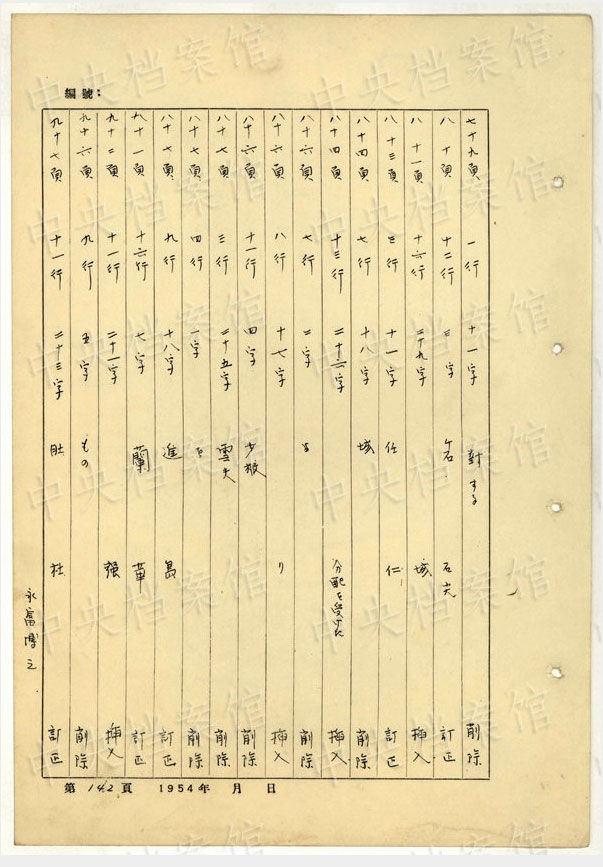 編號：
七十九頁 一行 十一字 對する 削除
八十頁 十二行 三字 石 石夫 訂正
八十一頁 十六行 二十九字 城 挿入
八十三頁 三行 十一字 任 仁 訂正
八十四頁 七行 十八字 城 削除
八十四頁 十三行 二十六字 分配を受けた 挿入
八十六頁 七行 三字 削除
八十六頁 八行 十七字 り 挿入
八十六頁 十一行 四字 削除
八十七頁 三行 二十五字 削除
八十七頁 四行 一字 を 削除
八十七頁 九行 十八字 進 島 訂正
九十一頁 十六行 七字 蘭 訂正
九十二頁 十一行 二十一字 强 挿入
九十六頁 九行 五字 もの 削除
九十七頁 十一行 二十三字 肚 杜 訂正
永富博之
第 142 頁 1954年 月 日
中央档案馆